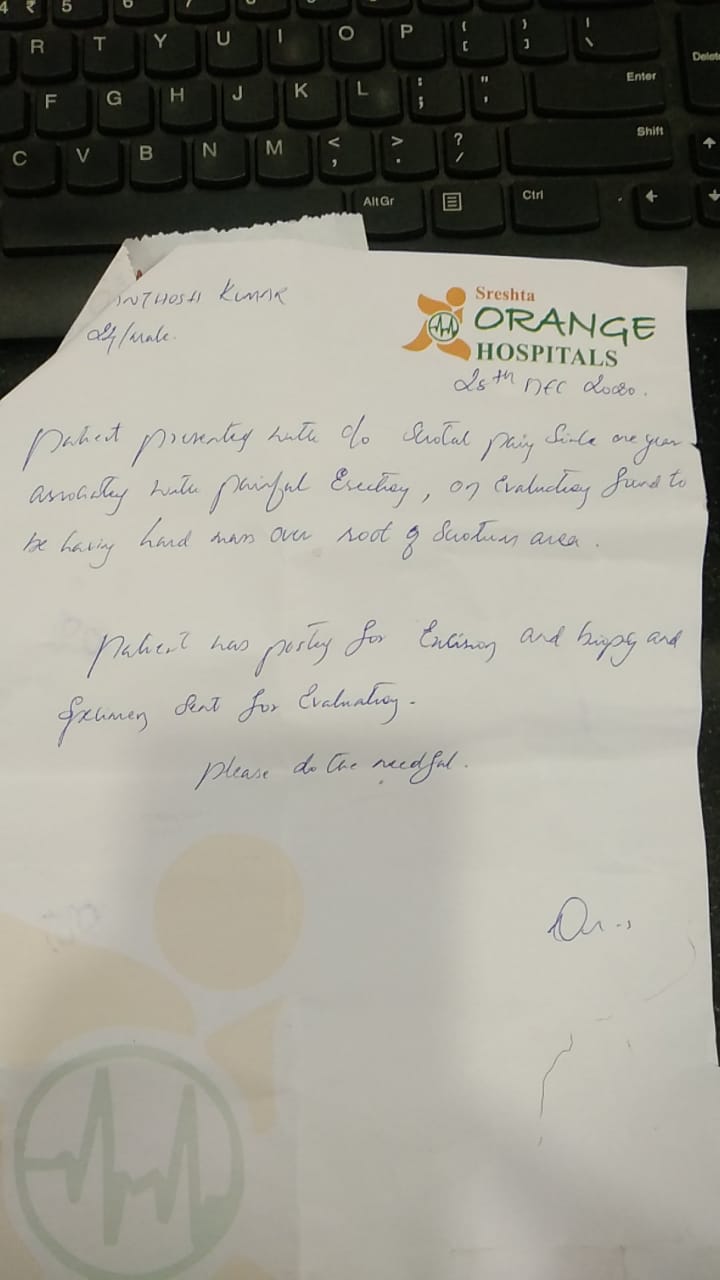 4 ₹ 5 6
R T Y U I O P { [ } ] | \ Delete
F G H J K L : ; " ' Enter
C V B N M < , > . ? / Shift
Alt Gr Ctrl
NTHOSH KUMAR
/male.
Sreshta
ORANGE
HOSPITALS
28th DEC 2020.
patient presented with c/o Scrotal pain Since one year
associated with painful Erection, on Evaluation found to
be having hard mass over root of Scrotum area.
patient was posted for Excision and biopsy and
Specimen Sent for Evaluation.
please do the needful.